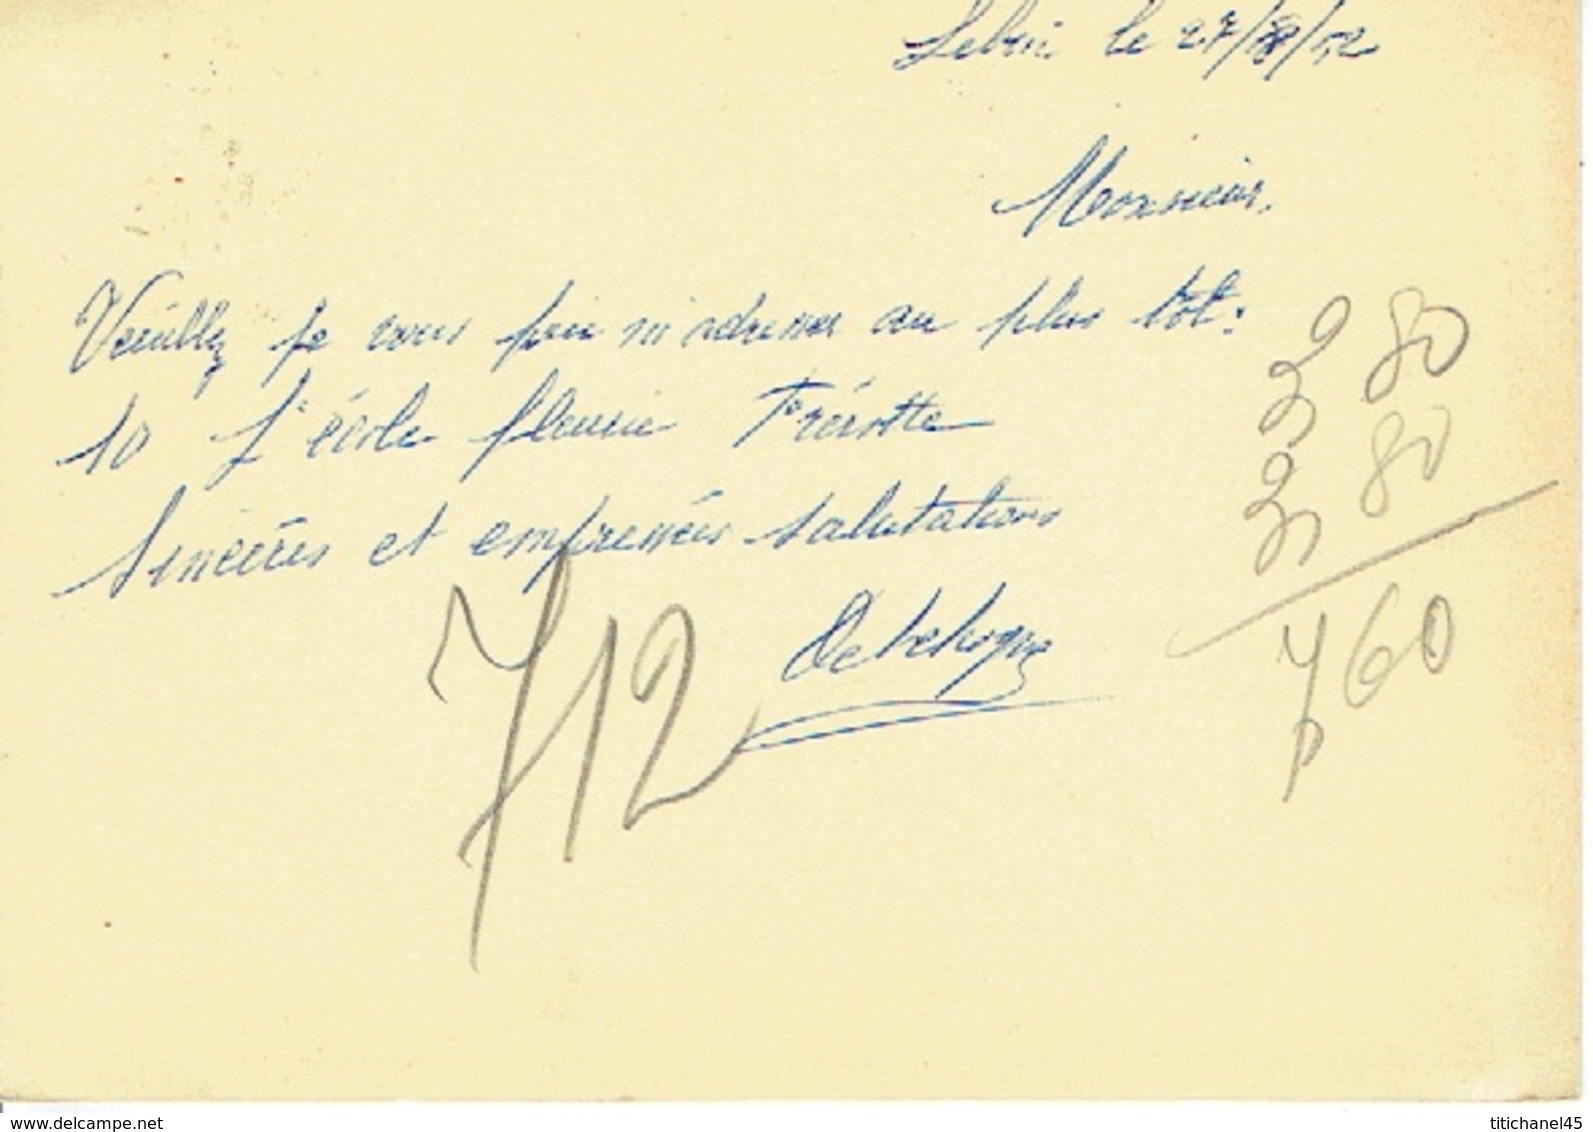 Lebin le 27/8/52
Monsieur,
Veuillez je vous prie m'adresser au plus tôt:
10 L'école fleurie Frérotte
Sincères et empressées salutations
712
80
80
60
delcampe.net
titichanel45